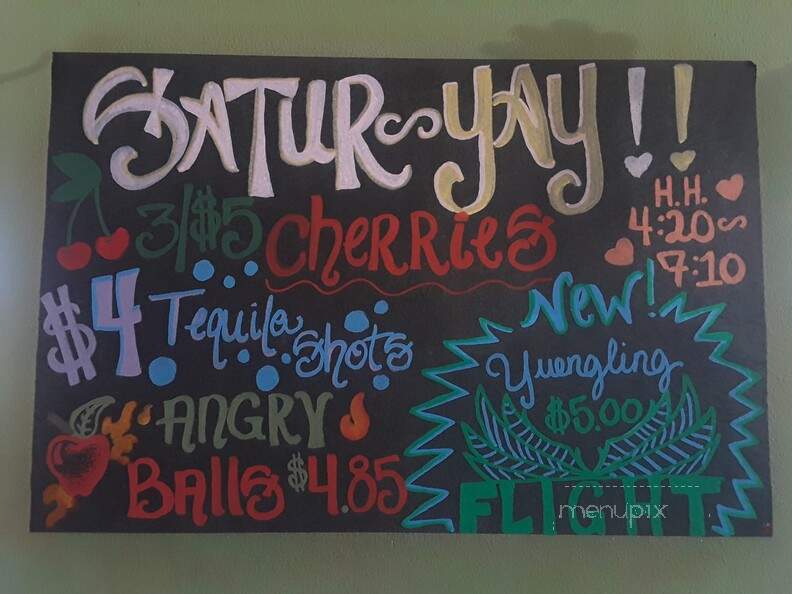 SATUR~YAY!!
H.H.
4:20~
7:10
3/$5 CheRRies
$4 Tequila shots
ANGRY
BAlls $4.85
New!
Yuengling
$5.00
FLIGHT
menupix